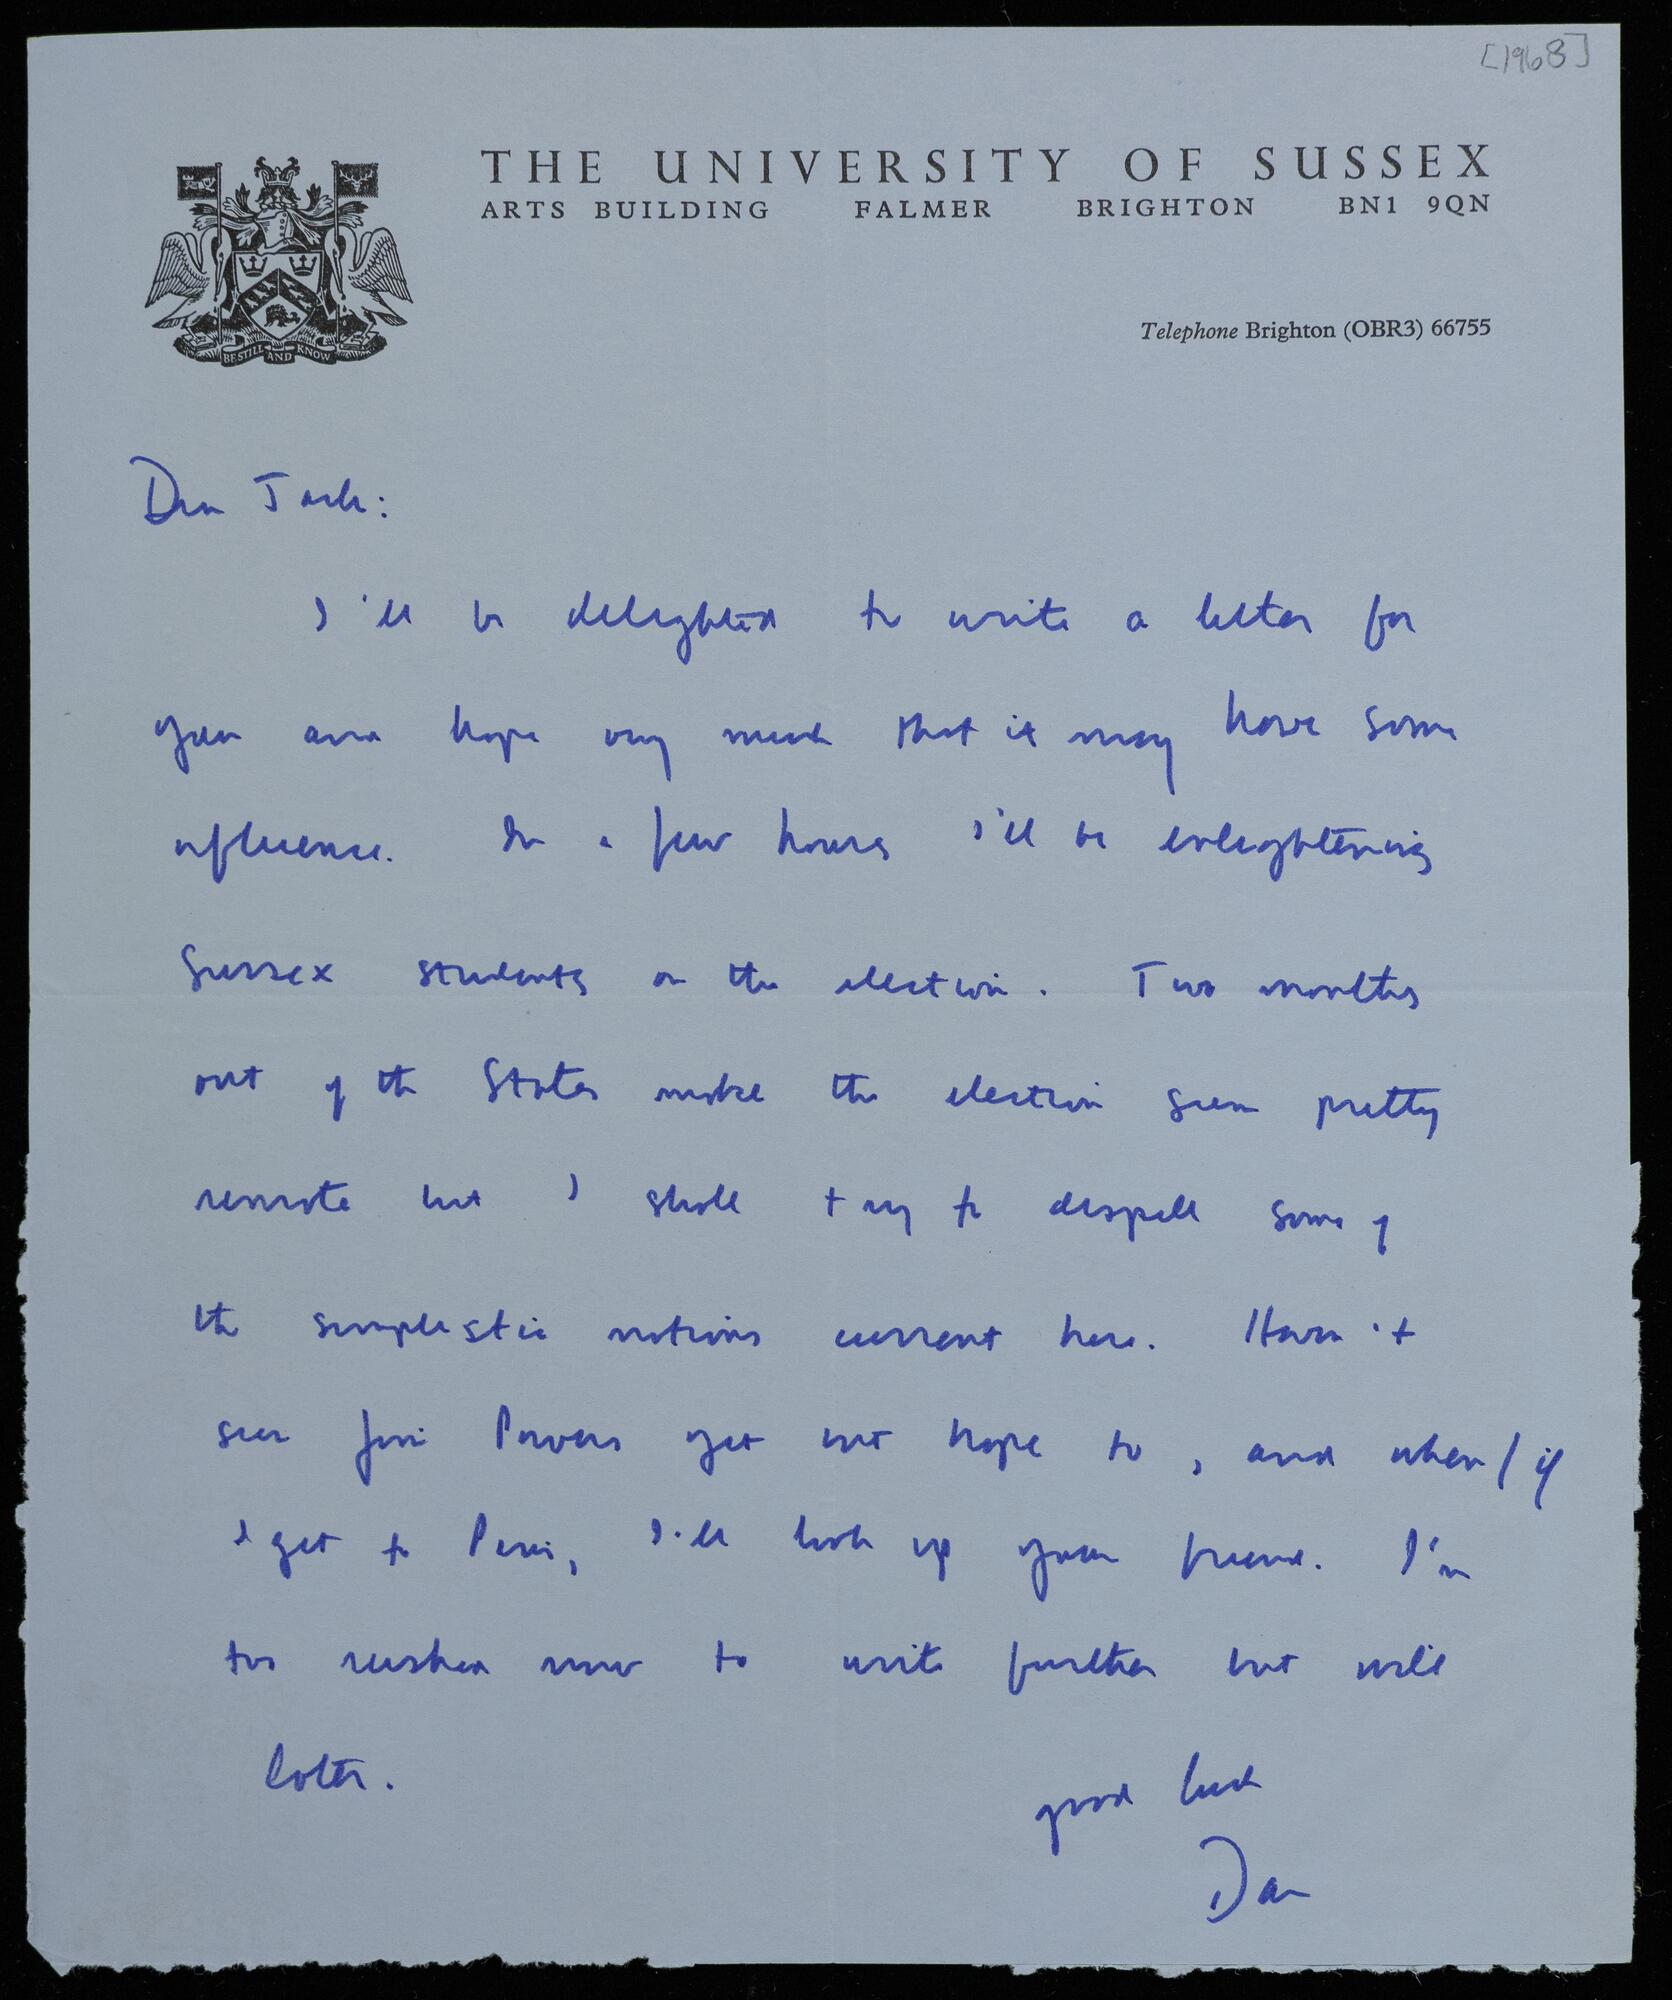 [1968]
THE UNIVERSITY OF SUSSEX
ARTS BUILDING FALMER BRIGHTON BN1 9QN
Telephone Brighton (OBR3) 66755
BE STILL AND KNOW
Dear Jack:
I'll be delighted to write a letter for
you and hope very much that it may have some
influence. In a few hours I'll be enlightening
Sussex students on the election. Two months
out of the States make the election seem pretty
remote but I shall try to despell some of
the simplistic notions current here. Haven't
seen Jim Powers yet but hope to, and when/if
I get to Paris, I'll look up your friend. I'm
too rushed now to write further but will
later.
good luck
Dan